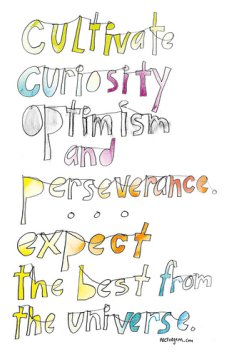 cultivate
curiosity
optimism
and
perseverance.
...
expect
the best from
the universe.